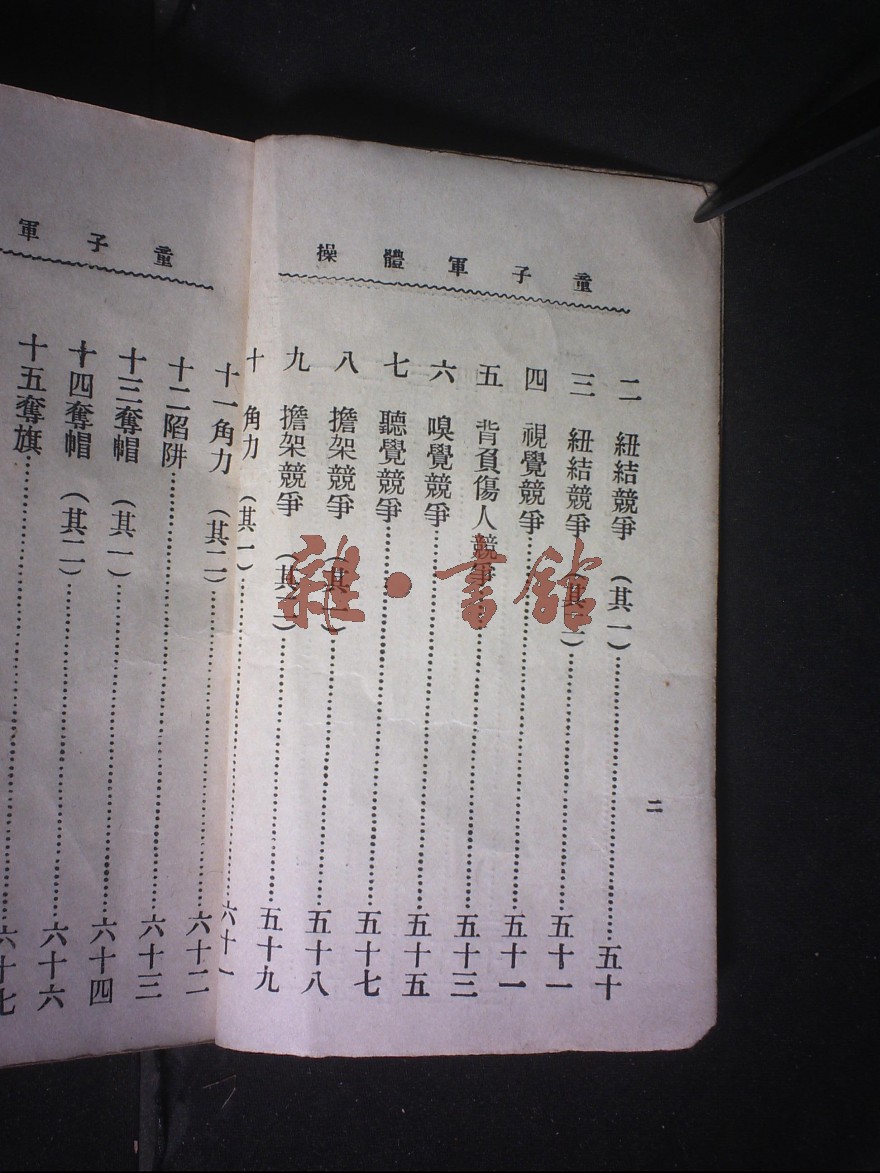 童子軍體操
二　紐結競爭（其一）……五十
三　紐結競爭（其二）……五十一
四　視覺競爭……五十一
五　背負傷人競爭……五十三
六　嗅覺競爭……五十五
七　聽覺競爭……五十七
八　擔架競爭（其一）……五十八
九　擔架競爭（其二）……五十九
十　角力（其一）……六十一
二
童子軍
十一角力（其二）……六十二
十二陷阱……六十三
十三奪帽（其一）……六十四
十四奪帽（其二）……六十六
十五奪旗……六十七
雜·書館